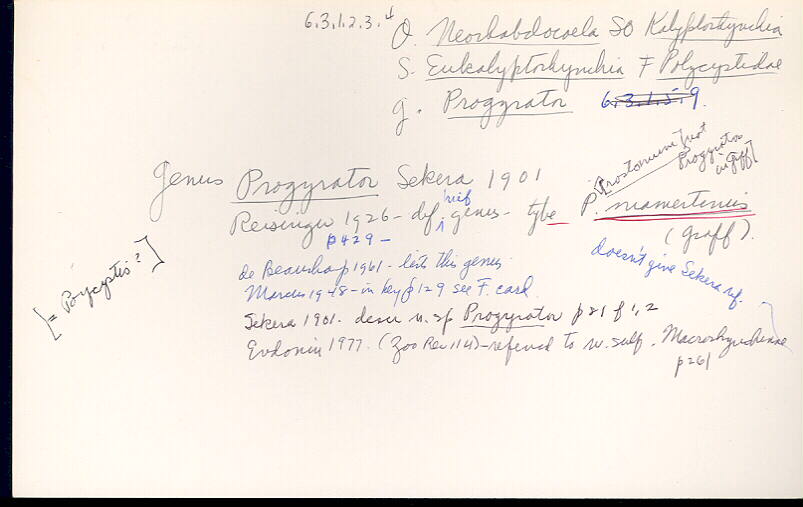 6.3.1.2.3.4
O. Neorhabdocoela SO Kalyptorhynchia
S. Eukalyptorhynchia F Polycystidae
g. Progyrator 6.3.1.5.9.
[Prostomum] not Progyrator in Graff]
Genus Progyrator Sekera 1901
Reisinger 1926 - def, brief genus - type P. mamertinus
p429 - (Graff).
[= Polycystis?]
doesn't give Sekera ref.
de Beauchamp 1961 - lists this genus
Marcus 1948 - in key p 129 see F. card
Sekera 1901. descr n. sp Progyrator p21 f 1, 2
Evdonin 1977. (Zoo Rec 114) - referred to n. subf. Macrorhynchinae
p261